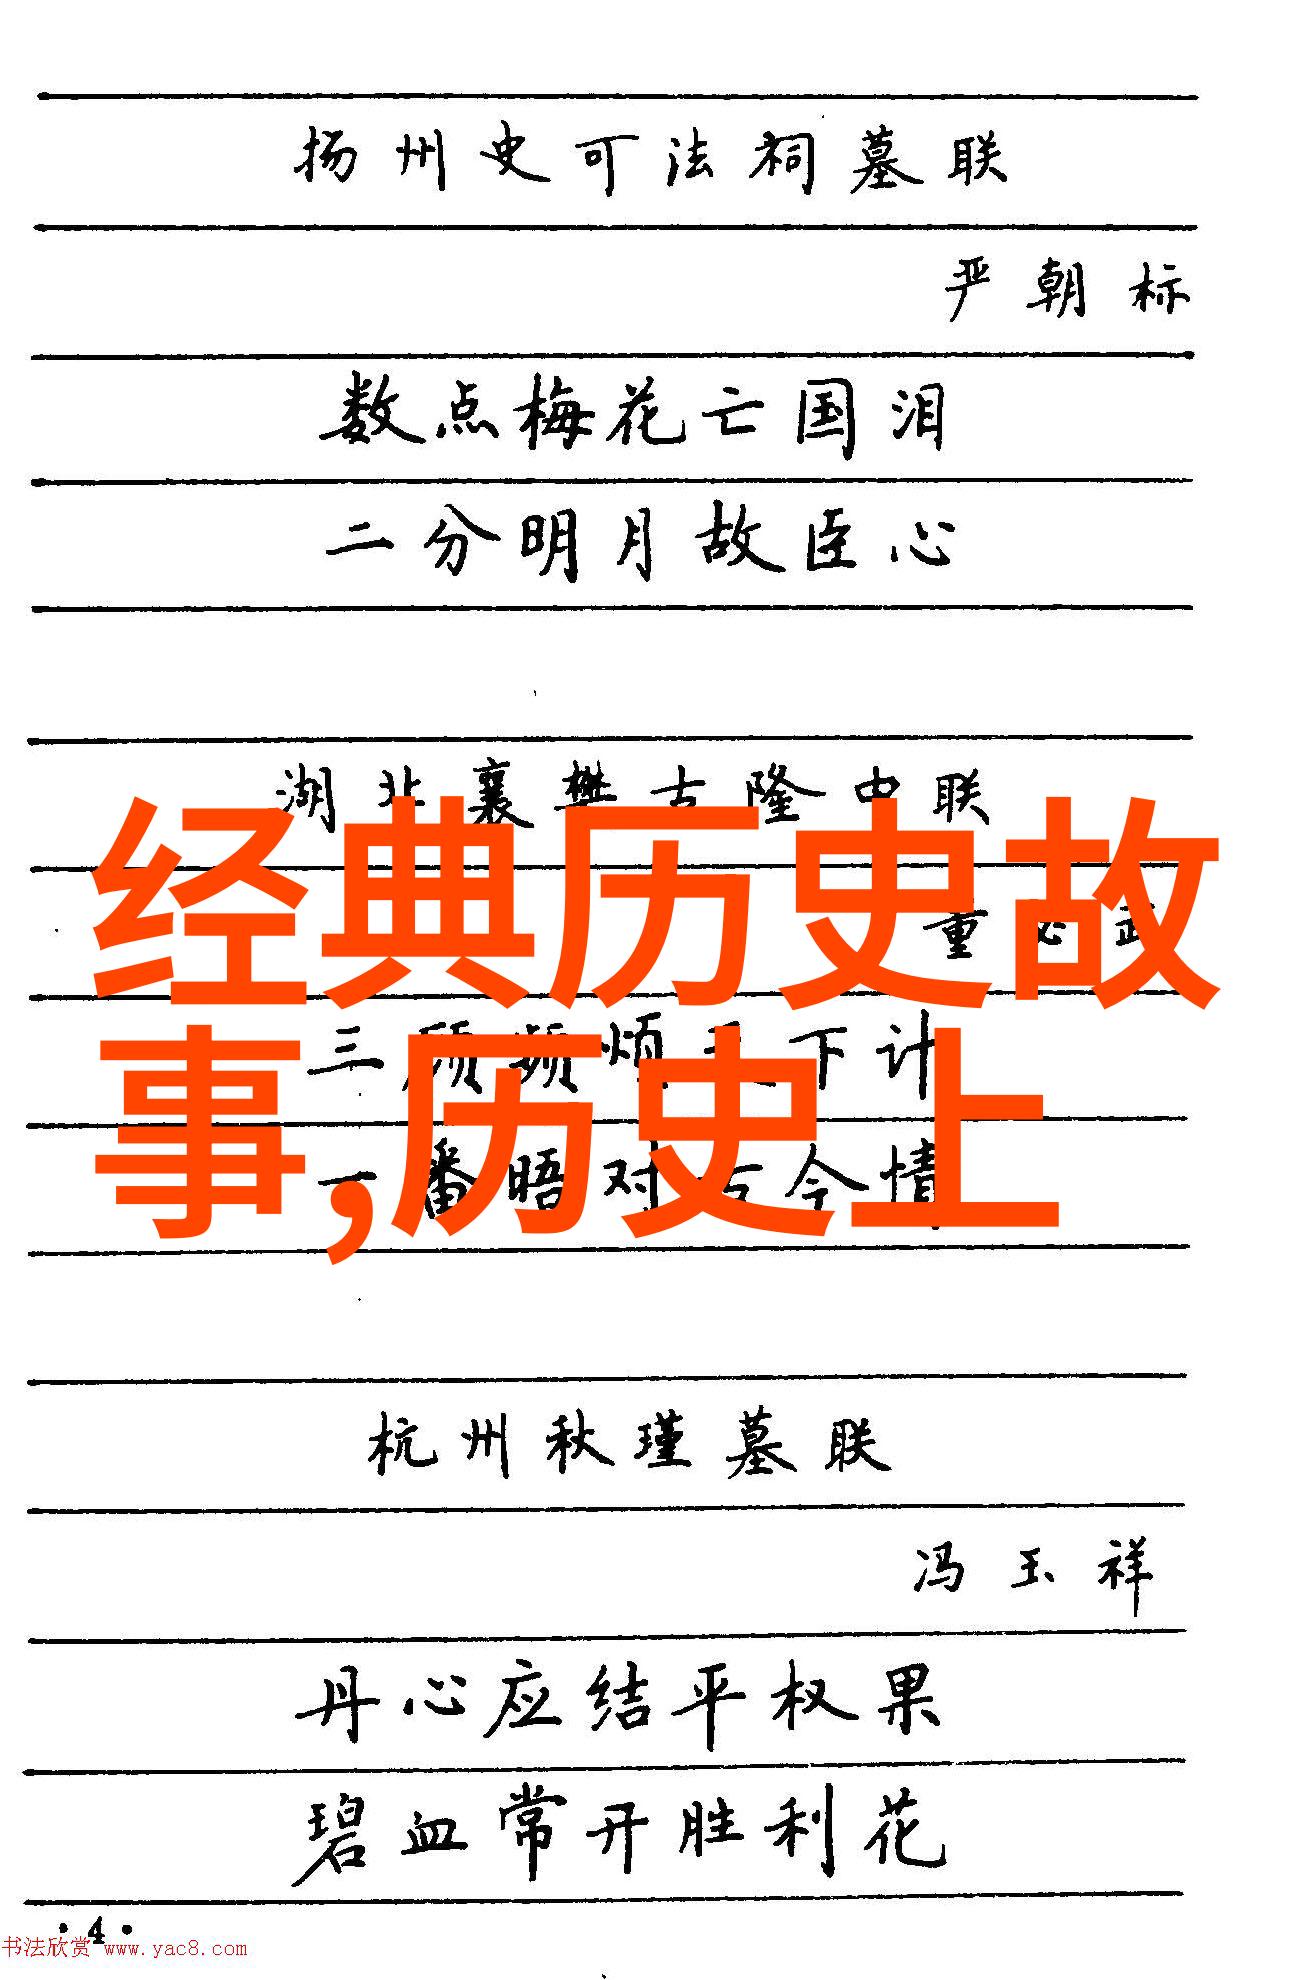 扬州史可法祠墓联
严朝标
数点梅花亡国泪
二分明月故臣心
湖北襄樊古隆中联
经典历史故
董必武
三顾频烦天下计
事,历史上
一番晤对古今情
杭州秋瑾墓联
冯玉祥
丹心应结平权果
碧血常开胜利花
·4·
书法欣赏 www.yac8.com